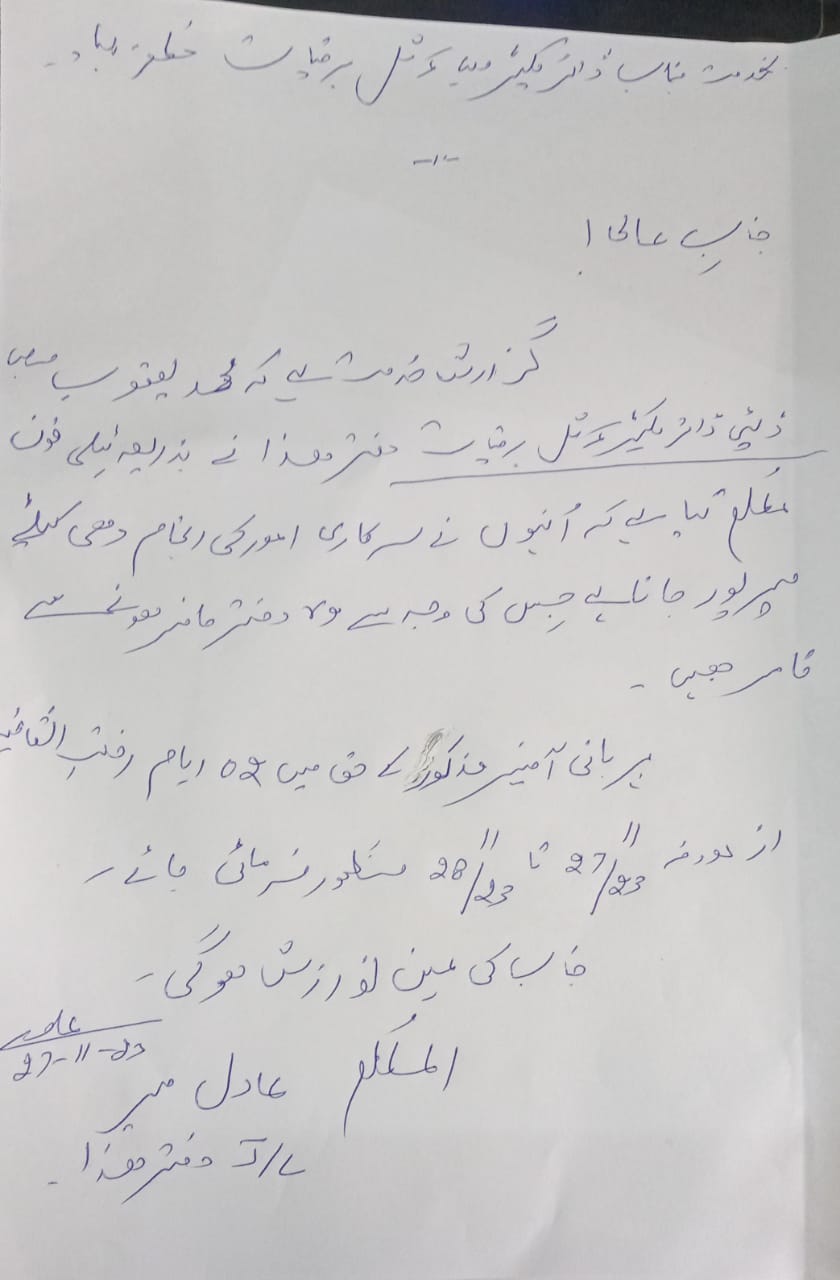 بخدمت جناب ڈائریکٹر ہائیڈرل برقیات مظفرآباد۔
-۱-
جنابِ عالی!
گزارش خدمت ہے کہ محمد یعقوب صاحب
ڈپٹی ڈائریکٹر ہائیڈرل برقیات دفتر ھذا نے بذریعہ ٹیلی فون
مطلع کیا ہے کہ اُنہوں نے سرکاری امور کی انجام دھی کیلئے
میرپور جانا ہے جِس کی وجہ سے وہ دفتر حاضر ھونے سے
قاصر ھیں۔
مہربانی آفیسر مذکور کے حق میں 02 ایام رخصتِ اتفاقیہ
از مورخہ 27/11/23 تا 28/11/23 منظور فرمائی جائے۔
جناب کی عین نوازش ھوگی۔
27-11-23
المُطلع عادل میر
J/C دفتر ھذا۔